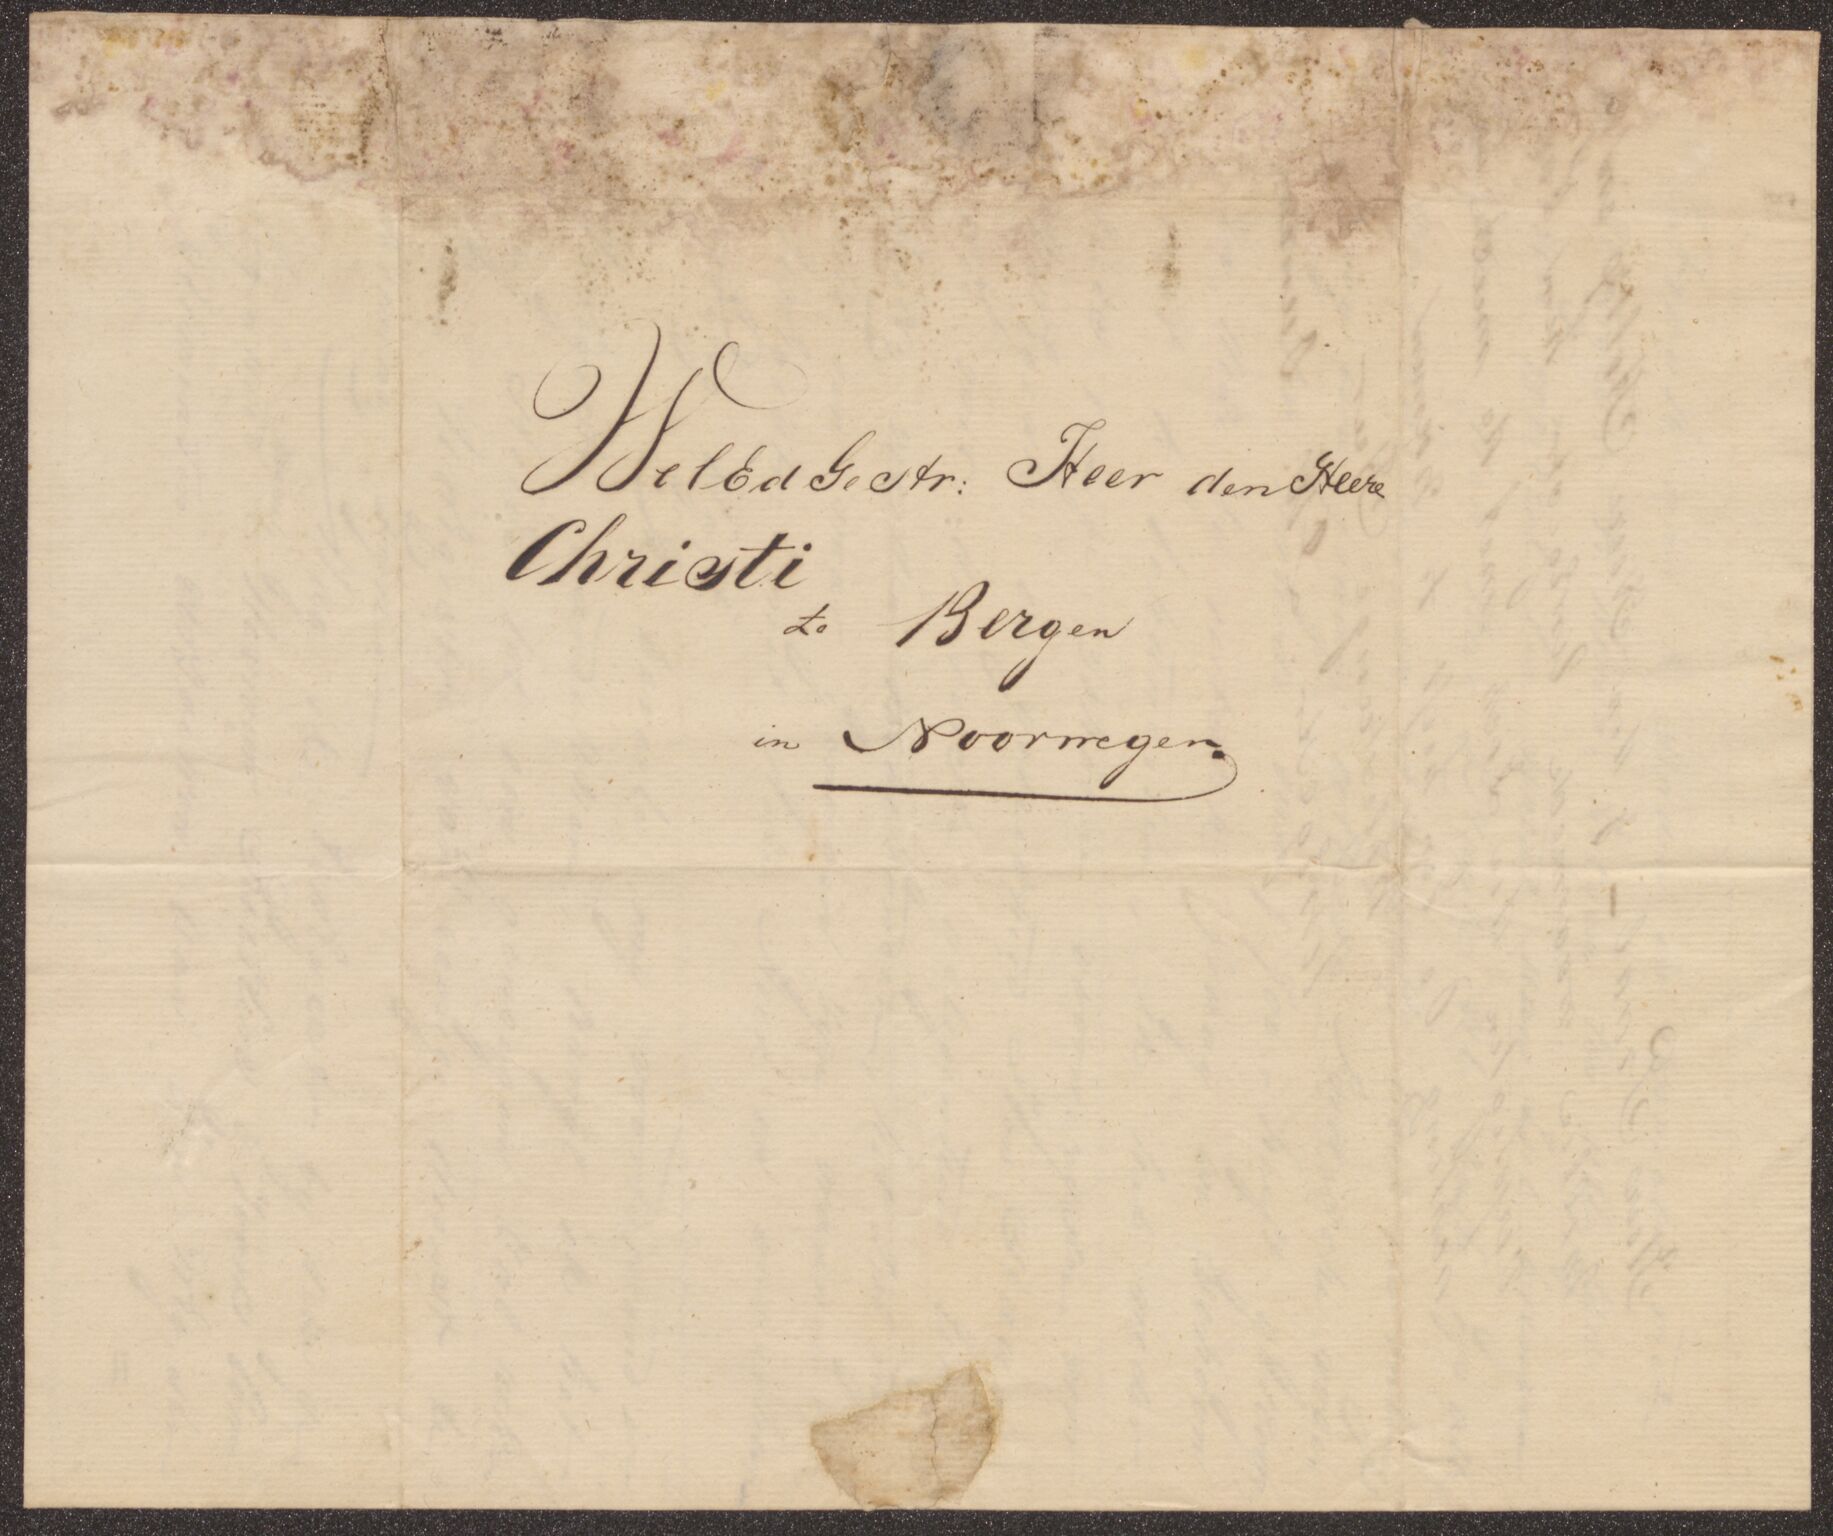 WelEdGestr: Heer den Heere
Christi
te Bergen
in Noorwegen.